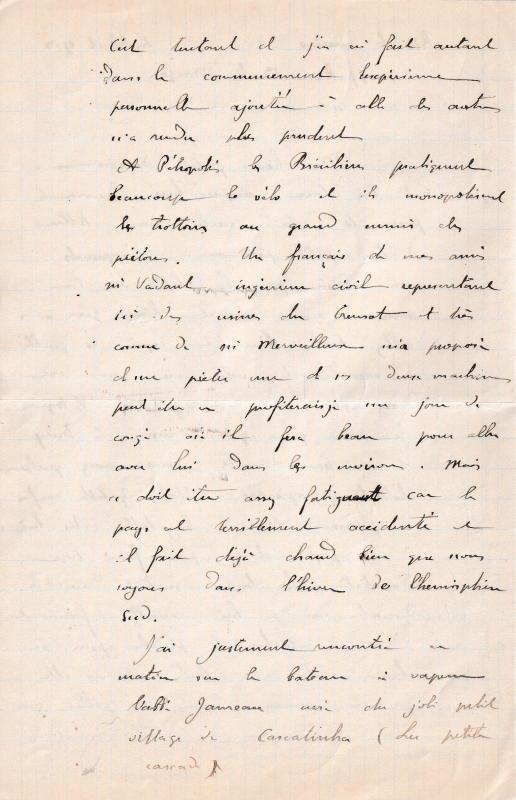 C'est tentant et j'en ai fait autant
dans le commencement l'expérience
personnelle ajoutée à celle des autres
m'a rendu plus prudent
A Pétropolis les Brésiliens pratiquent
beaucoup le vélo et ils monopolisent
les trottoirs au grand ennui des
piétons. Un français de mes amis
mr Vadant ingénieur civil représentant
ici des usines du Creusot et très
connu de mr Merveilleux m'a proposé
de me prêter une de ses deux machines
peut être en profiterais je un jour de
congé où il fera beau pour aller
avec lui dans les environs. Mais
ce doit être assez fatigant car le
pays est terriblement accidenté et
il fait déjà chaud bien que nous
soyons dans l'hiver de l'hémisphère
Sud.
J'ai justement rencontré ce
matin sur le bateau à vapeur
l'abbé Jameau curé du joli petit
village de Cascatinha (La petite
cascade)